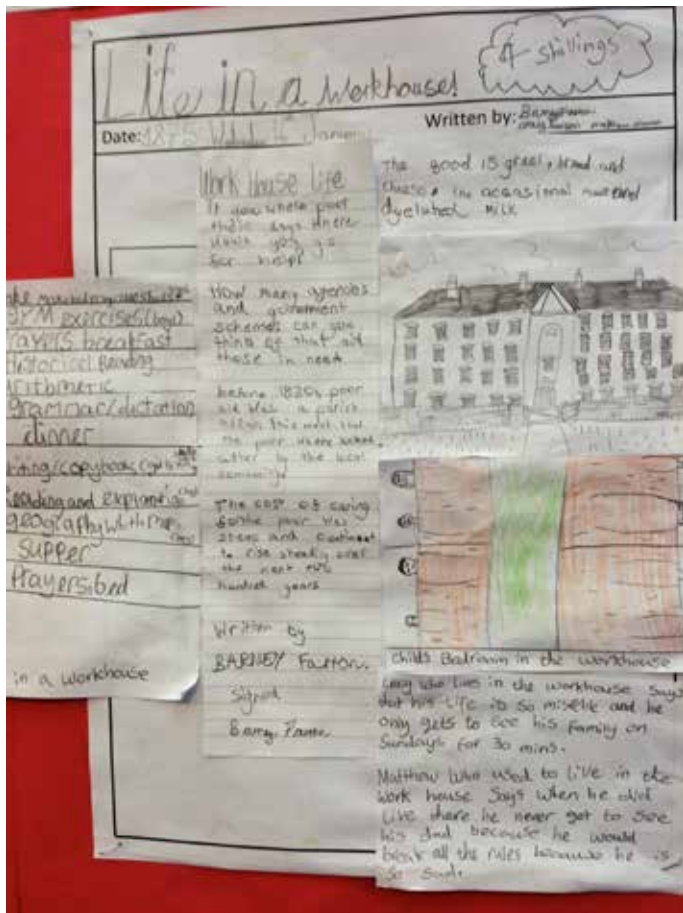 Life in a Workhouse!
4 shillings
Date: 1875
Written by:
The good is gruel, bread and
cheese, the acasional
milk
Work House Life
If you where poor
those days where
would you go
for
How many agencies
and
schemes can you
think of that aid
those in need
before 1820s poor
aid was a parish
this ment that
the poor where
by the local
The cost of caring
the poor was
and continued
to rise steadly over
the next
hundred years
Written by
BARNEY
Signed
exercises (boys)
rayers breakfast
Historical Reading
rithmetic
Grammar/dictation
dinner
riting/copybooks
Reading and
geography with
Supper
Prayers:bed
in a workhouse
Childs Badroom in the workhouse
who lives in the workhouse Says
that his life is so and he
only gets to see his family on
Sundays for 30 mins.
Matthew who used to live in the
work house Says when he did
live there he never got to see
his dad because he would
break all the rules because he is
so